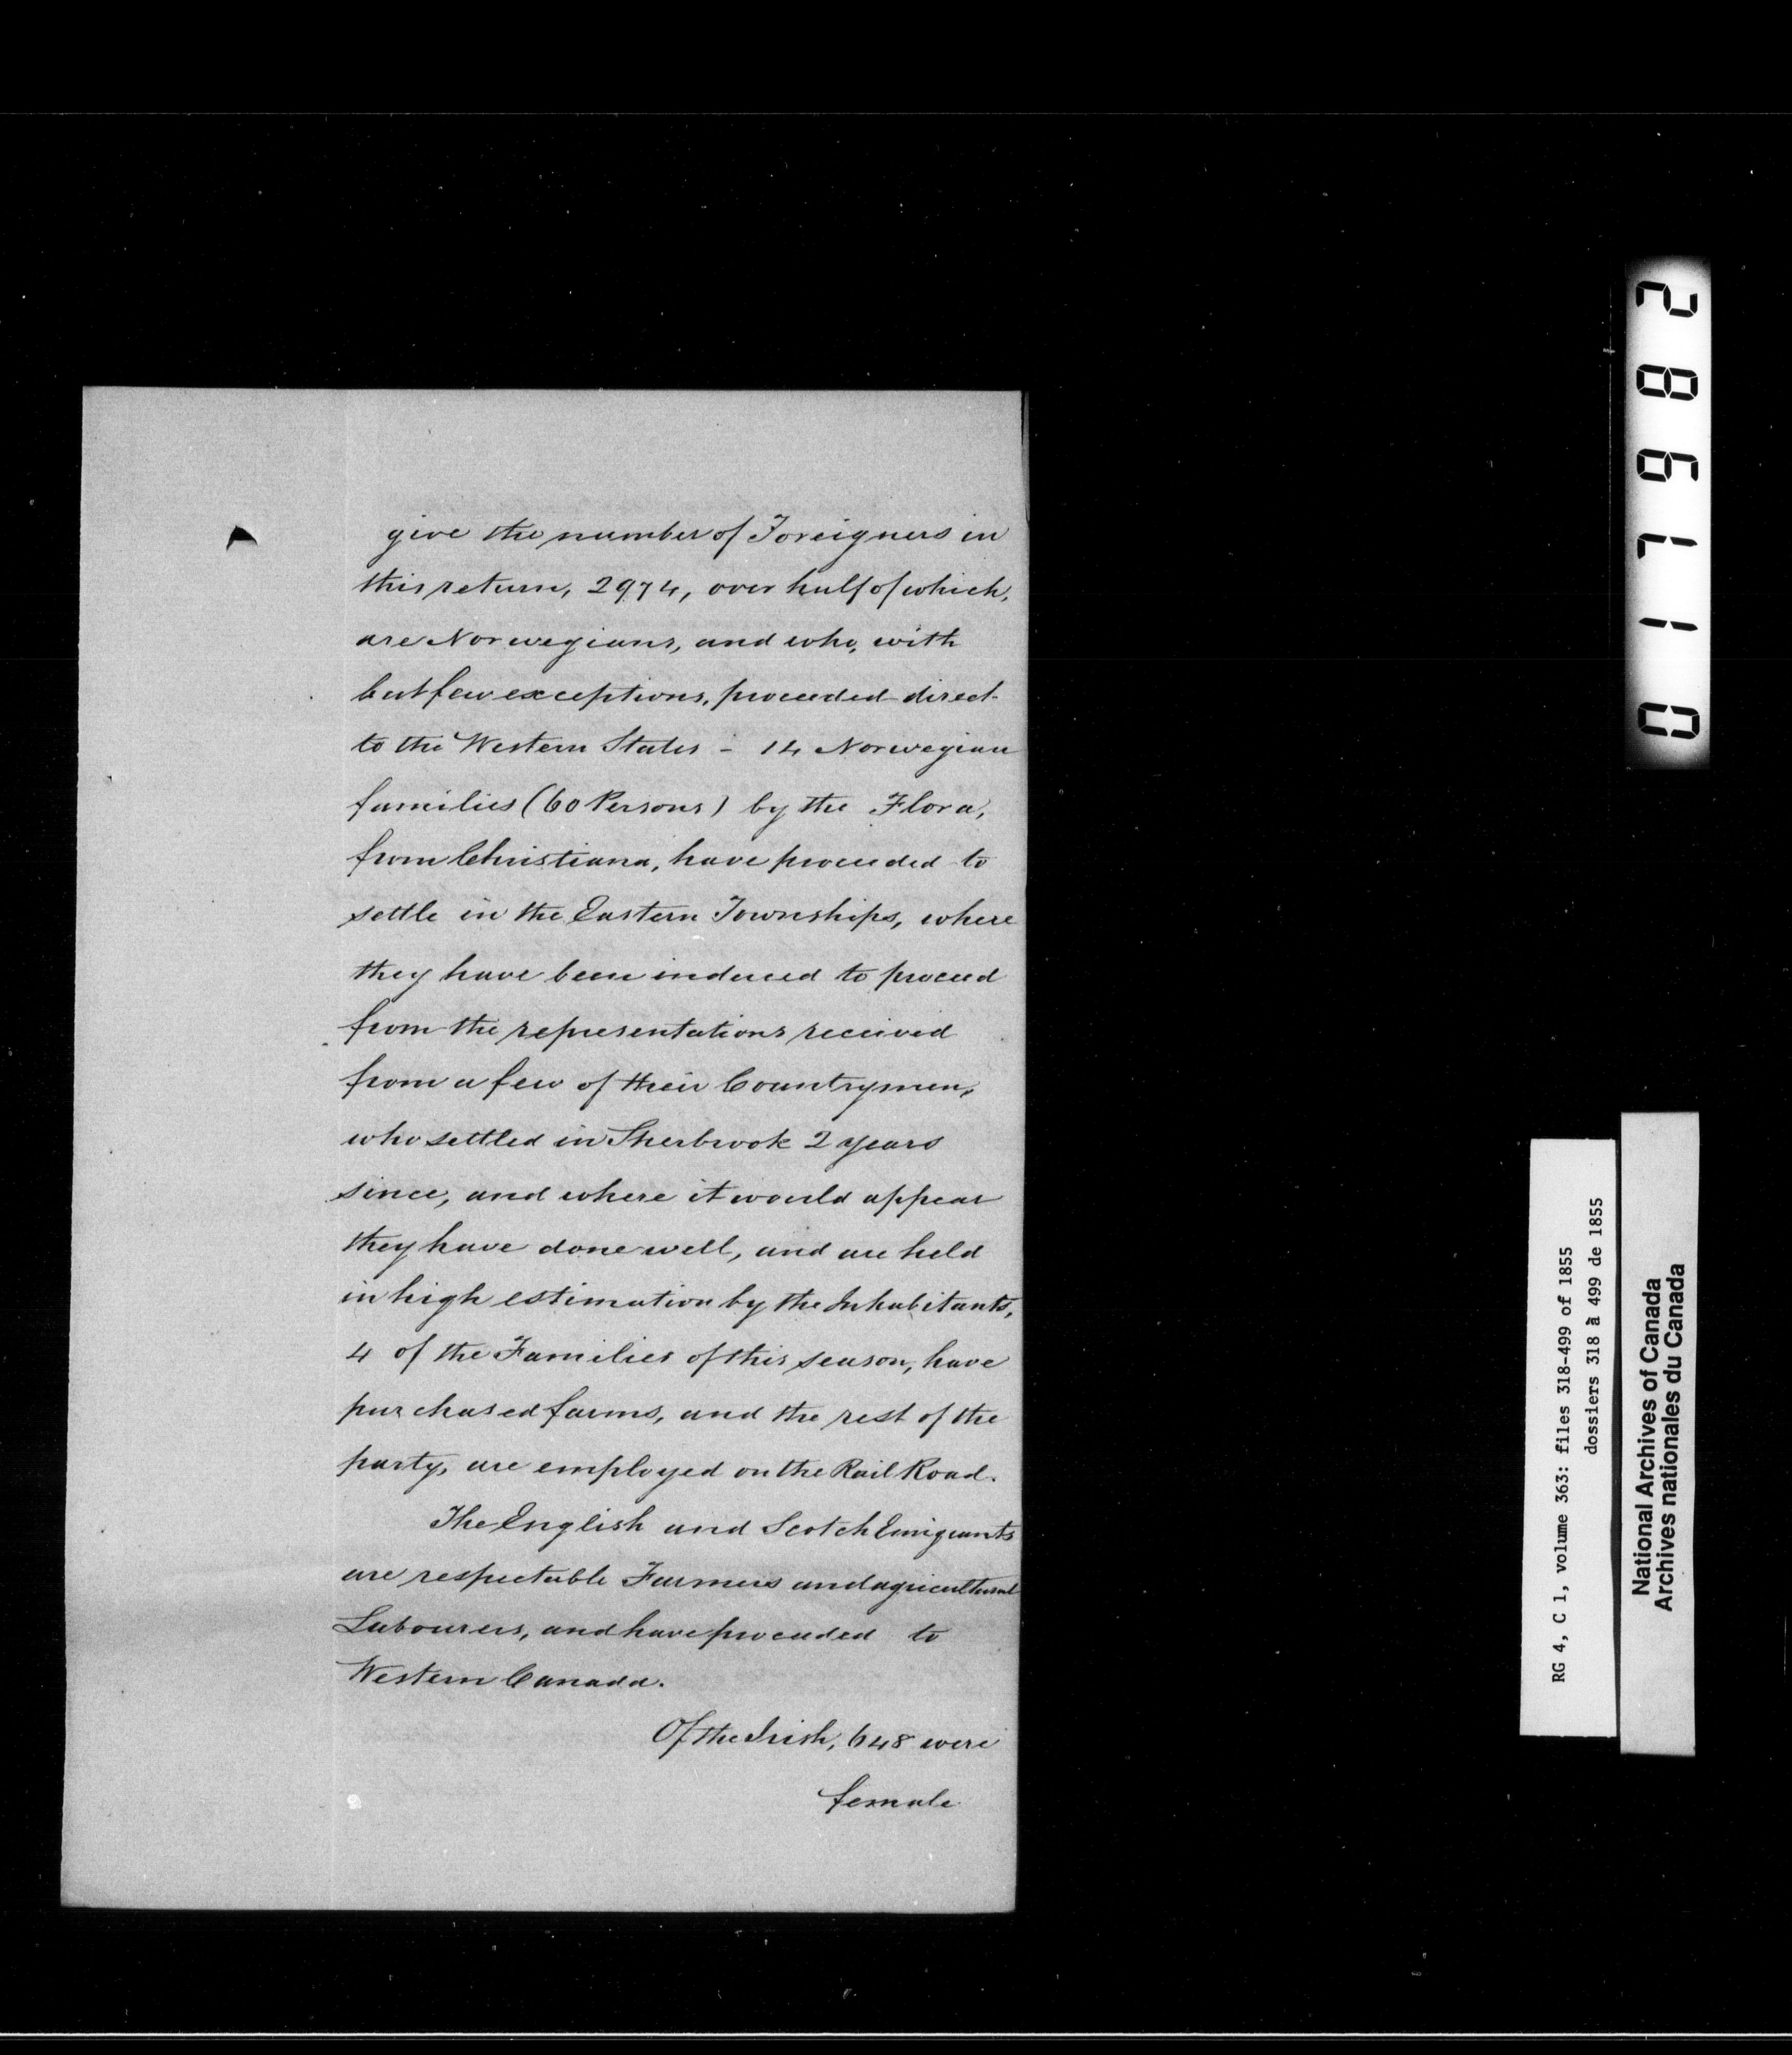 give the number of Foreigners in
this return, 2974, over half of which,
are Norwegians, and who, with
but few exceptions, proceeded direct
to the Western States - 14 Norwegian
families (60 Persons) by the Flora,
from Christiana, have proceeded to
settle in the Eastern Townships, where
they have been induced to proceed
from the representations received
from a few of their Countrymen,
who settled in Sherbrook 2 years
since, and where it would appear
they have done well, and are held
in high estimation by the Inhabitants,
4 of the Families of this season, have
purchased farms, and the rest of the
party, are employed on the Rail Road.
The English and Scotch Emigrants
are respectable Farmers and agricultural
Labourers, and have proceeded to
Western Canada.
Of the Irish, 648 were
female
011982
RG 4, C 1, volume 363: files 318-499 of 1855
dossiers 318 à 499 de 1855
National Archives of Canada
Archives nationales du Canada